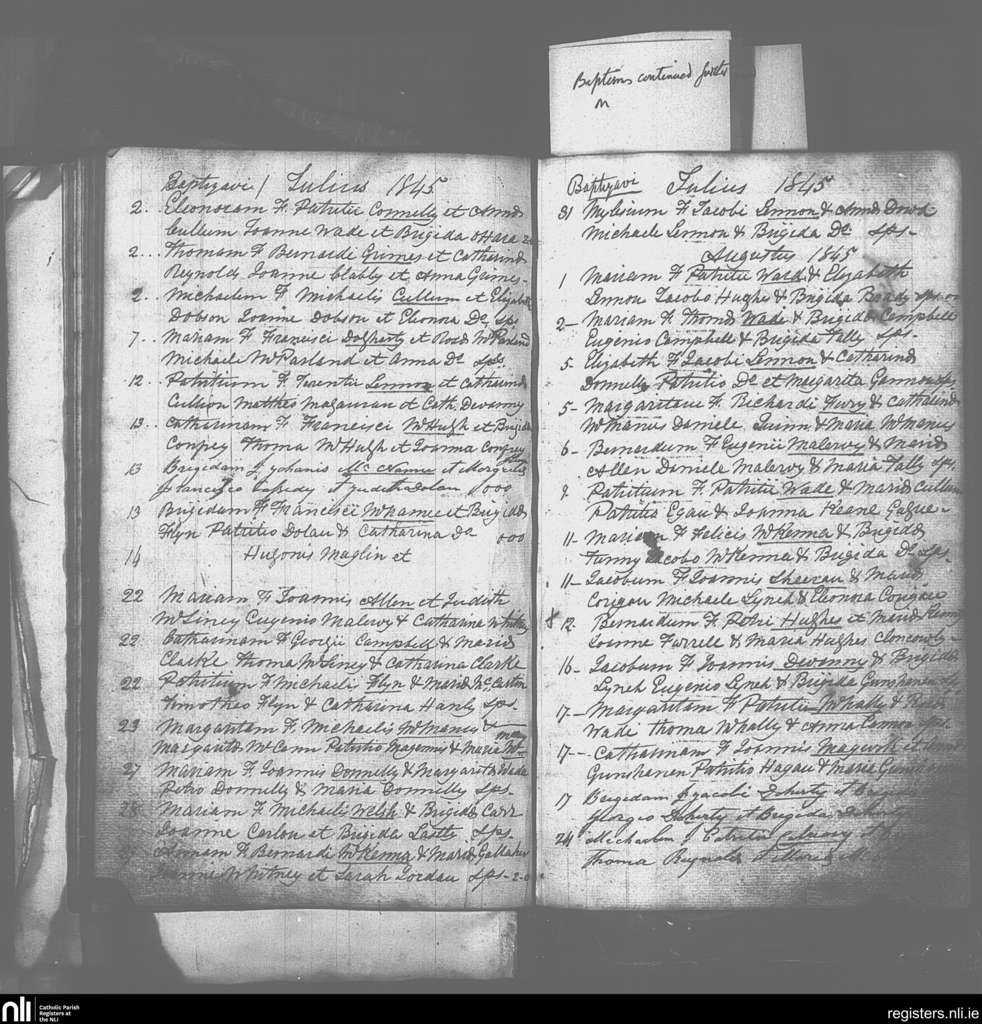 Baptisms continued further
on
Baptizavi / Julius 1845
2.. Eleonoram F. Patritii Connelly et Anna
Cullum Joanne Wade et Brigida O'Hara
2... Thomam F Bernardi Grimes et Catharina
Reynolds Joanne Clabby et Anna Grimes
2. Michaelem F Michaelis Cullum et Elizabeth
Dobson Joanne Dobson et Elionora Do Sps
7.. Mariam F. Francisci Dogherty et Rosa McParland
Michaele McParland et Anna Do Sps
12.. Patritium F. Terentii Lennon et Catharina
Cullion Mattheo Magauran et Cath. Devanny
13.. Catharinam F Francisci McHugh et Brigida
Confrey Thoma McHugh et Joanna Confrey
13 Brigidam f. Johanis Mc Namee et
Francisco et Juditha Dolan 1000
13 Brigidam F Francisci McNamee et Brigida
Flyn Patritio Dolan & Catharina Do 000
14 Hugonis Maglin et
22 Mariam F Joannis Allen et Judith
McGiney Eugenio Malervy & Catharina Whitney
22 Catharinam F Georgii Campbell & Maria
Clarke Thoma McGiney & Catharina Clarke
22 Patritium F Michaelis Flyn & Maria McCartin
Timotheo Flyn & Catharina Hanly Sps.
23 Margaritam F. Michaelis McManus &
Margarita McCann Patritio Magennis & Maria
27 Mariam F. Joannis Donnelly & Margarita Wade
Petro Donnelly & Maria Donnelly Sps.
28 Mariam F. Michaelis Welsh & Brigida Carr
Joanne Carlou et Brigida Sps.
Annam F Bernardi McKenna & Maria Gallaher
Joanne Whitney et Sarah Jordan Sps-
Baptizavi Julius 1845
31 Mylesium F Jacobi Lennon & Anna Dowd
Michaele Lennon & Brigida Do Sps-
Augustus 1845
1 Mariam F Patritii Ward & Elizabeth
Lennon Jacobo Hughes & Brigida Brady Sps
2- Mariam F. Thoma Wade & Brigida Campbell
Eugenio Campbell & Brigida Fally Sps-
5. Elizabeth F Jacobi Lennon & Catharina
Donnelly Patritio Do et Margarita Gannon Sps
5- Margaritam F. Richardi Fury & Catharina
McManus Daniele Quinn & Maria McManus
6- Bernardum F Eugenii Malervy & Maria
Allen Daniele Malervy & Maria Fally Sps.
9 Patritium F. Patritii Wade & Maria Cullum
Patritio Egan & Joanna Keane
11- Mariam F Felicis McKenna & Brigida
Funny Jacobo McKenna & Brigida Do Sps
11- Jacobum F Joannis Sheeran & Maria
Corigan Michaele Lynch & Elenora Corigan
12. Bernardum F Petri Hughes et Maria
Joanne Farrell & Maria Hughes Cloncowly
16- Jacobum F Joannis Devanny & Brigida
Lynch Eugenio Lynch & Brigida
17- Margaritam F Patritii Whally &
Wade Thoma Whally & Anna Lennon Sps.
17- Catharinam F Joannis et
Gunshenan Patritio Hagan & Maria
17 Brigidam f Jacobi Doherty et
Georgio Doherty et Brigida Doherty
24 Michaelem f Patritii
Thoma Reynolds & Maria M
nli
Catholic Parish
Registers at
the NLI
registers.nli.ie